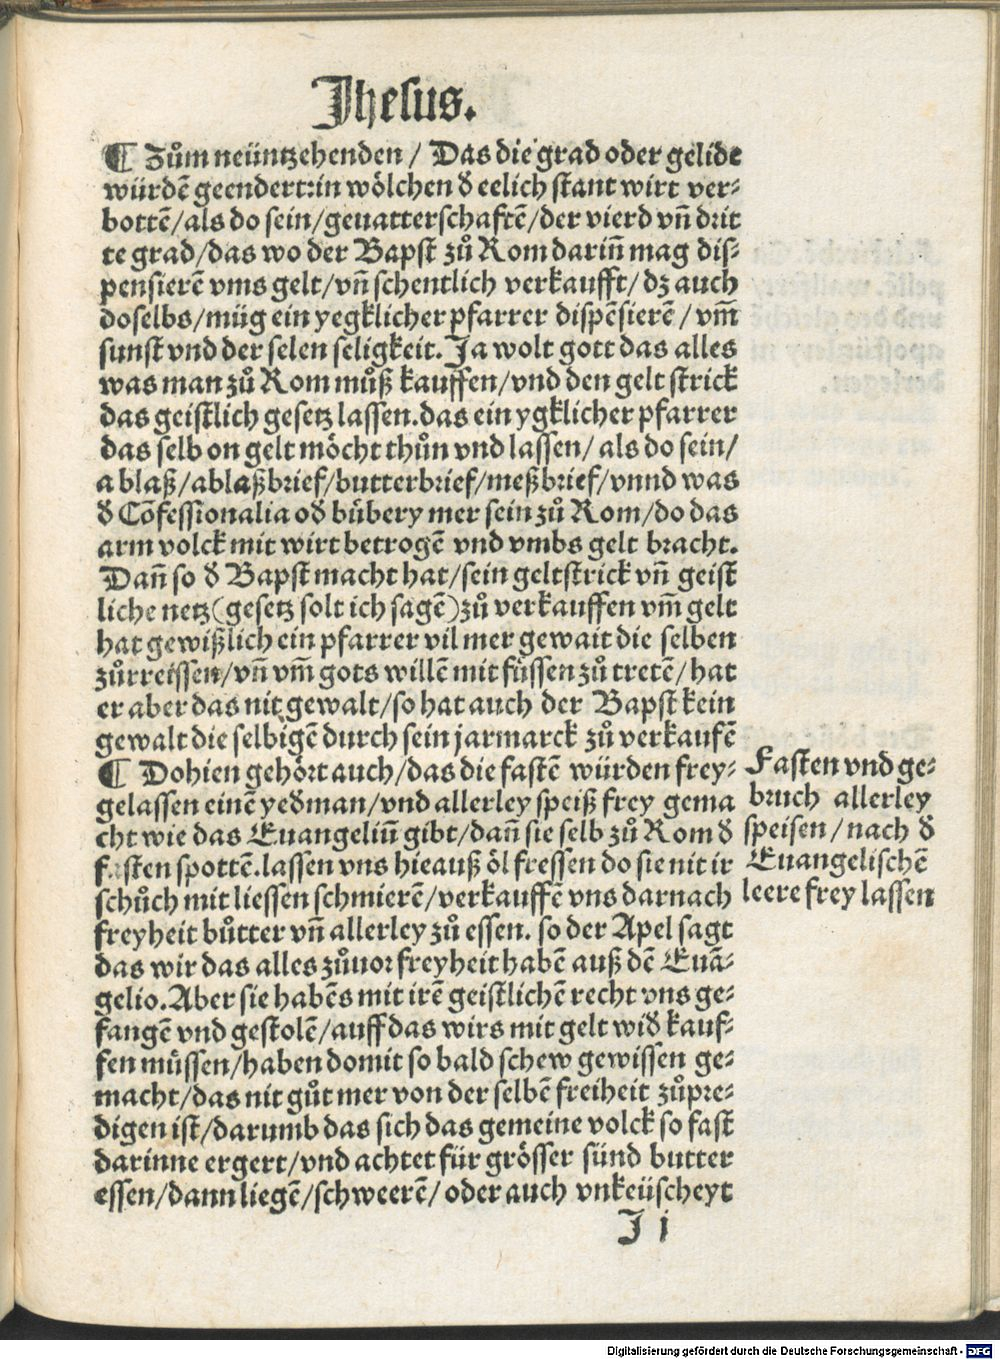 Jhesus.
¶ Zům neüntzehenden / Das die grad oder gelide
würdē geendert:in wölchen ð eelich stant wirt ver⸗
bottē/als do sein/geuatterschafftē/der vierd vn̄ drit
te grad/das wo der Bapst zů Rom darin̄ mag dis⸗
pensierē vms gelt/vn̄ schentlich verkaufft/ dz auch
doselbs/müg ein yegklicher pfarrer dispēsierē / vm̄
sunst vnd der selen seligkeit. Ja wolt gott das alles
was man zů Rom můß kauffen/vnd den gelt strick
das geistlich gesetz lassen.das ein ygklicher pfarrer
das selb on gelt möcht thůn vnd lassen/ als do sein/
ablaß/ablaßbrief/butterbrief/meßbrief/vnnd was
ð Cōfessionalia oð bůbery mer sein zů Rom/do das
arm volck mit wirt betrogē vnd vmbs gelt bracht.
Dan̄ so ð Bapst macht hat/sein geltstrick vn̄ geist
liche netz(gesetz solt ich sagē)zů verkauffen vm̄ gelt
hat gewißlich ein pfarrer vil mer gewalt die selben
zůrreissen/vn̄ vm̄ gots willē mit füssen zů tretē/hat
er aber das nit gewalt/so hat auch der Bapst kein
gewalt die selbigē durch sein jarmarck zů verkaufē
¶ Dohien gehört auch/das die fastē würden frey⸗
gelassen einē yeðman/vnd allerley speiß frey gema
cht wie das Euangeliū gibt/dan̄ sie selb zů Rom ð
fasten spottē.lassen vns hieauß öl fressen do sie nit ir
schůch mit liessen schmierē/verkauffē vns darnach
freyheit bůtter vn̄ allerley zů essen. so der Apel sagt
das wir das alles zůuor freyheit habē auß dē Euā⸗
gelio.Aber sie habēs mit irē geistlichē recht vns ge⸗
fangē vnd gestolē/auff das wirs mit gelt wið kauf⸗
fen müssen/haben domit so bald schew gewissen ge⸗
macht/das nit gůt mer von der selbē freiheit zůpre⸗
digen ist/darumb das sich das gemeine volck so fast
darinne ergert/vnd achtet für grösser sünd butter
essen/dann liegē/schweerē/ oder auch vnkeüscheyt
J i
Fasten vnd ge⸗
bruch allerley
speisen/nach ð
Euangelischē
leere frey lassen
Digitalisierung gefördert durch die Deutsche Forschungsgemeinschaft - DFG